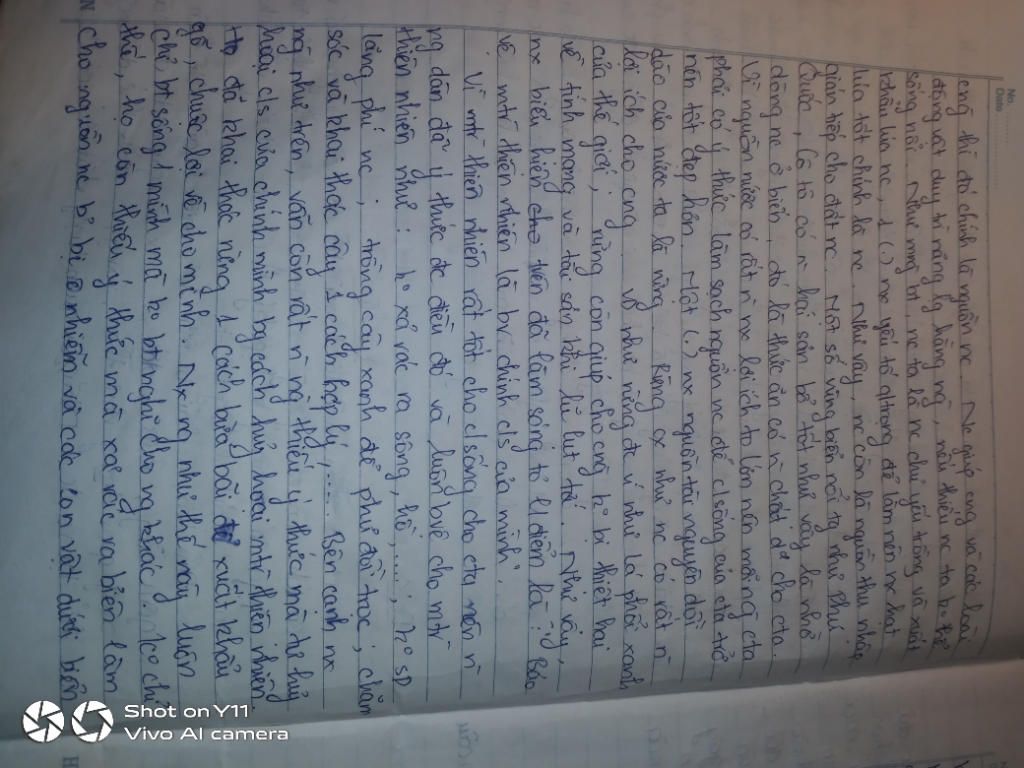 No.
Date
cng thì đó chính là nguồn nc. Nó giúp cng và các loài
động vật duy trì năng lg hằng ng, nếu thiếu nc ta ko thể
sống nổi. Như mng bt, nc ta là nc chủ yếu trồng và xuất
khẩu lúa nc, 1 (.) nx yếu tố q/trọng để làm nên nx hạt
lúa tốt chính là nc. Như vậy, nc còn là nguồn thu nhập
gián tiếp cho đất nc. Một số vùng biển nổi ta như Phú
Quốc, Cô tô có n hải sản bổ tốt như vậy là nhờ
dòng nc ở biển, đó là thức ăn có n chất d2 cho cta.
Vì nguồn nước có rất n nx lợi ích to lớn nên mỗi ng cta
phải có ý thức làm sạch nguồn nc để c/sống của cta trở
nên tốt đẹp hơn. Một (.) nx nguồn tài nguyên dồi
dào của nước ta là rừng. Rừng cx như nc có rất n
lợi ích cho cng. Vd như rừng đc ví như lá phổi xanh
của thế giới; rừng còn giúp cho cng ko bị thiệt hại
về tính mạng và tài sản bởi lũ lụt tế. Như vậy,
nx biểu hiện trên đã làm sáng tỏ l.điểm là: "Bảo
vệ mtr thiên nhiên là bv chính c/s của mình".
Vì mtr thiên nhiên rất tốt cho c/sống cho cta nên n
ng dân đã ý thức đc điều đó và luôn bvệ cho mtr
thiên nhiên như: ko xả rác ra sông, hồ,....; ko sp
lãng phí nc; trồng cây xanh để phủ đồi trọc; chăm
sóc và khai thác cây 1 cách hợp lý,.... Bên cạnh nx
ng như trên, vẫn còn rất n ng thiếu ý thức mà họ huỷ
hoại c/s của chính mình bg cách huỷ hoại mtr thiên nhiên.
Họ đã khai thác rừng 1 cách bừa bãi để xuất khẩu
gỗ, chuộc lợi về cho mình. Nx ng như thế này luôn
chỉ bt sống 1 mình mà ko bt nghĩ cho ng khác. Ko chỉ
thế, họ còn thiếu ý thức mà xả rác ra biển làm
cho nguồn nc bị ô nhiễm và các con vật dưới biển
Shot on Y11
Vivo AI camera